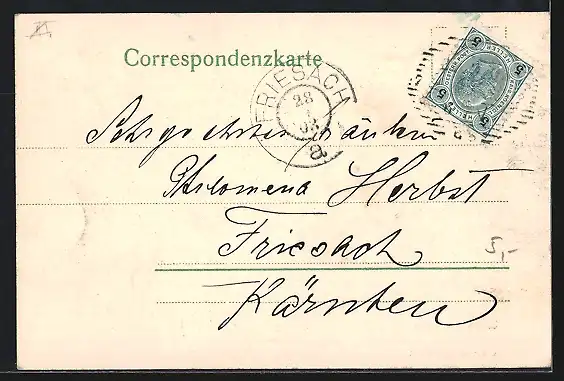 Correspondenzkarte
FRIESACH
28
03
a
5 5
5 5
HELLER
Sehrgeehrten Fräulein
Philomena Herbst
Friesach
5,-
Kärnten